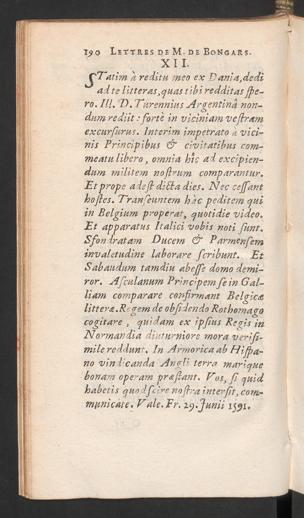 190 LETTRES DE M. DE BONGARS.
XII.
STatim à reditu meo ex Dania, dedi
ad te litteras, quas tibi redditas spe-
ro. Ill. D. Tarennius Argentinâ non-
dum rediit: fortè in viciniam vestram
excursurus. Interim impetrato à vici-
nis Principibus & civitatibus com-
meatu libero, omnia hîc ad excipien-
dum militem nostrum comparantur.
Et prope adest dicta dies. Nec cessant
hostes. Transeuntem hàc peditem qui
in Belgium properat, quotidie video.
Et apparatus Italici vobis noti sunt.
Sfondratam Ducem & Parmensem
invaletudine laborare scribunt. Et
Sabaudum tamdiu abesse domo demi-
ror. Asculanum Principem se in Gal-
liam comparare confirmant Belgicæ
litteræ. Regem de obsidendo Rothomago
cogitare, quidam ex ipsius Regis in
Normandia diuturniore mora verisi-
mile reddunt. In Armorica ab Hispa-
no vindicanda Angli terra marique
bonam operam præstant. Vos, si quid
habetis quod scire nostra intersit, com-
municate. Vale. Fr. 29. Junii 1591.